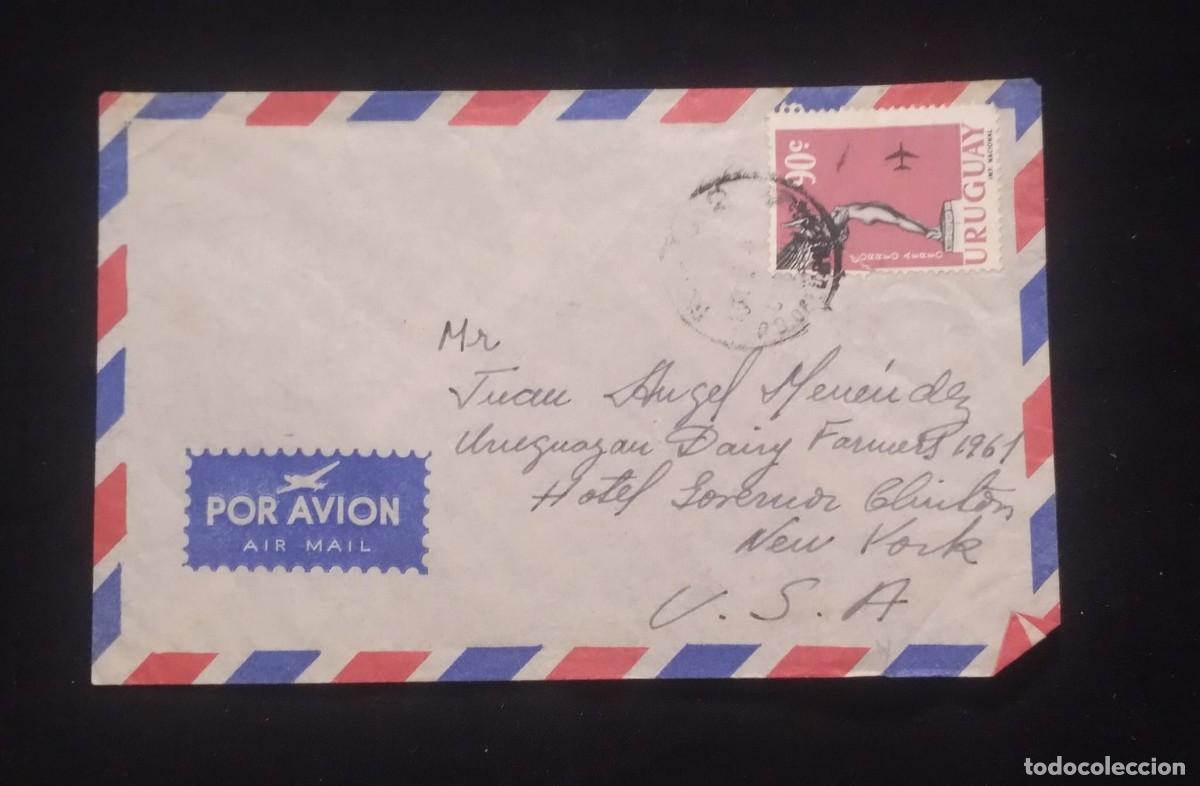 90c
URUGUAY
IMP. NACIONAL
CORREO AEREO
Mr
Juan Angel Menéndez
Uruguayan Dairy Farmers 1961
Hotel Governor Clinton
New York
U. S. A
POR AVION
AIR MAIL
todocoleccion